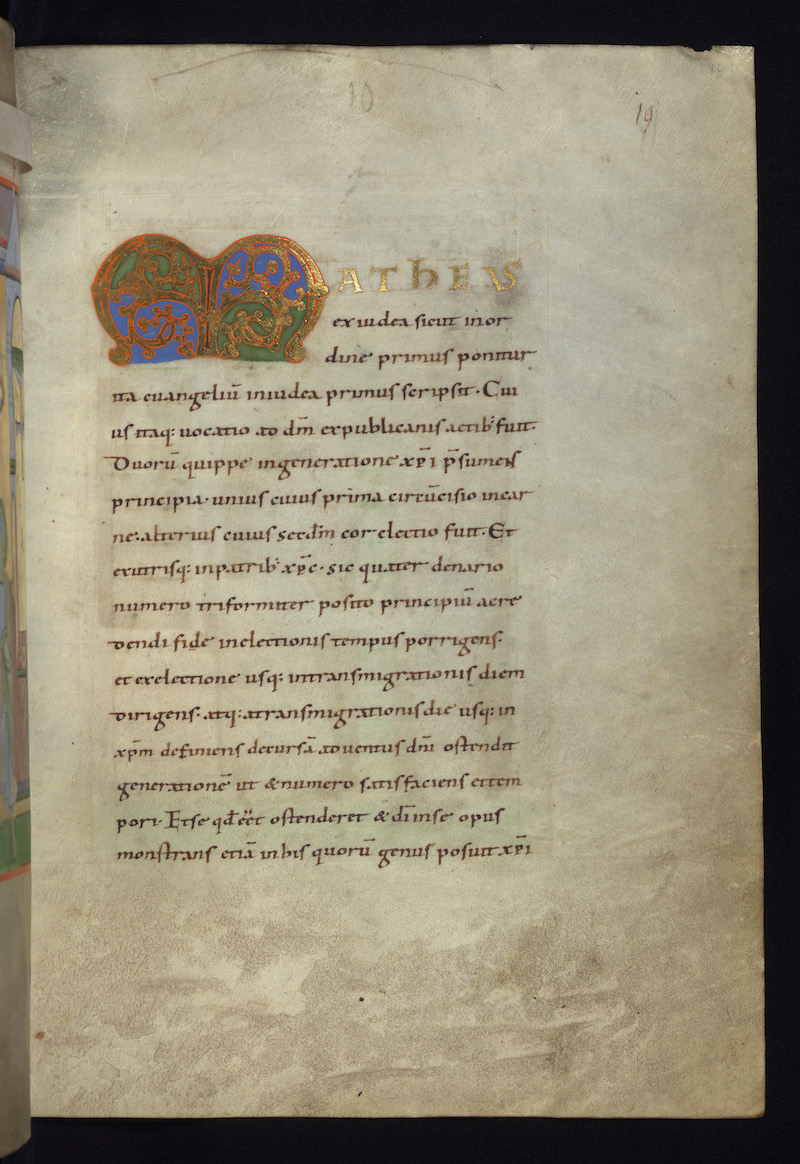 10
19
MATHEUS
ex iudea sicut in or
dine primus ponitur
ita euangeliū in iudea primus scripsit · Cui
us itaq: uocatio ad dm̄ ex publicanis actib' fuit ·
Duorū quippe in generatione xp̄i p̄sumens
principia · unius cuius prima circūcisio in car
ne · alterius cuius secdm̄ cor electio fuit · Et
ex utrisq: in patrib' xp̄c · sic quater denario
numero triformiter posito principiū a cre
dendi fide in electionis tempus porrigens ·
et ex electione usq: in transmigrationis diem
dirigens · atq: a transmigrationis die usq: in
xp̄m definiens decursā aduentus dn̄i ostendit
generationē ut & numero satisfaciens et tem
pori · Et se qd̄ eēt ostenderet & dī in se opus
monstrans etiā in his quorū genus posuit xp̄i